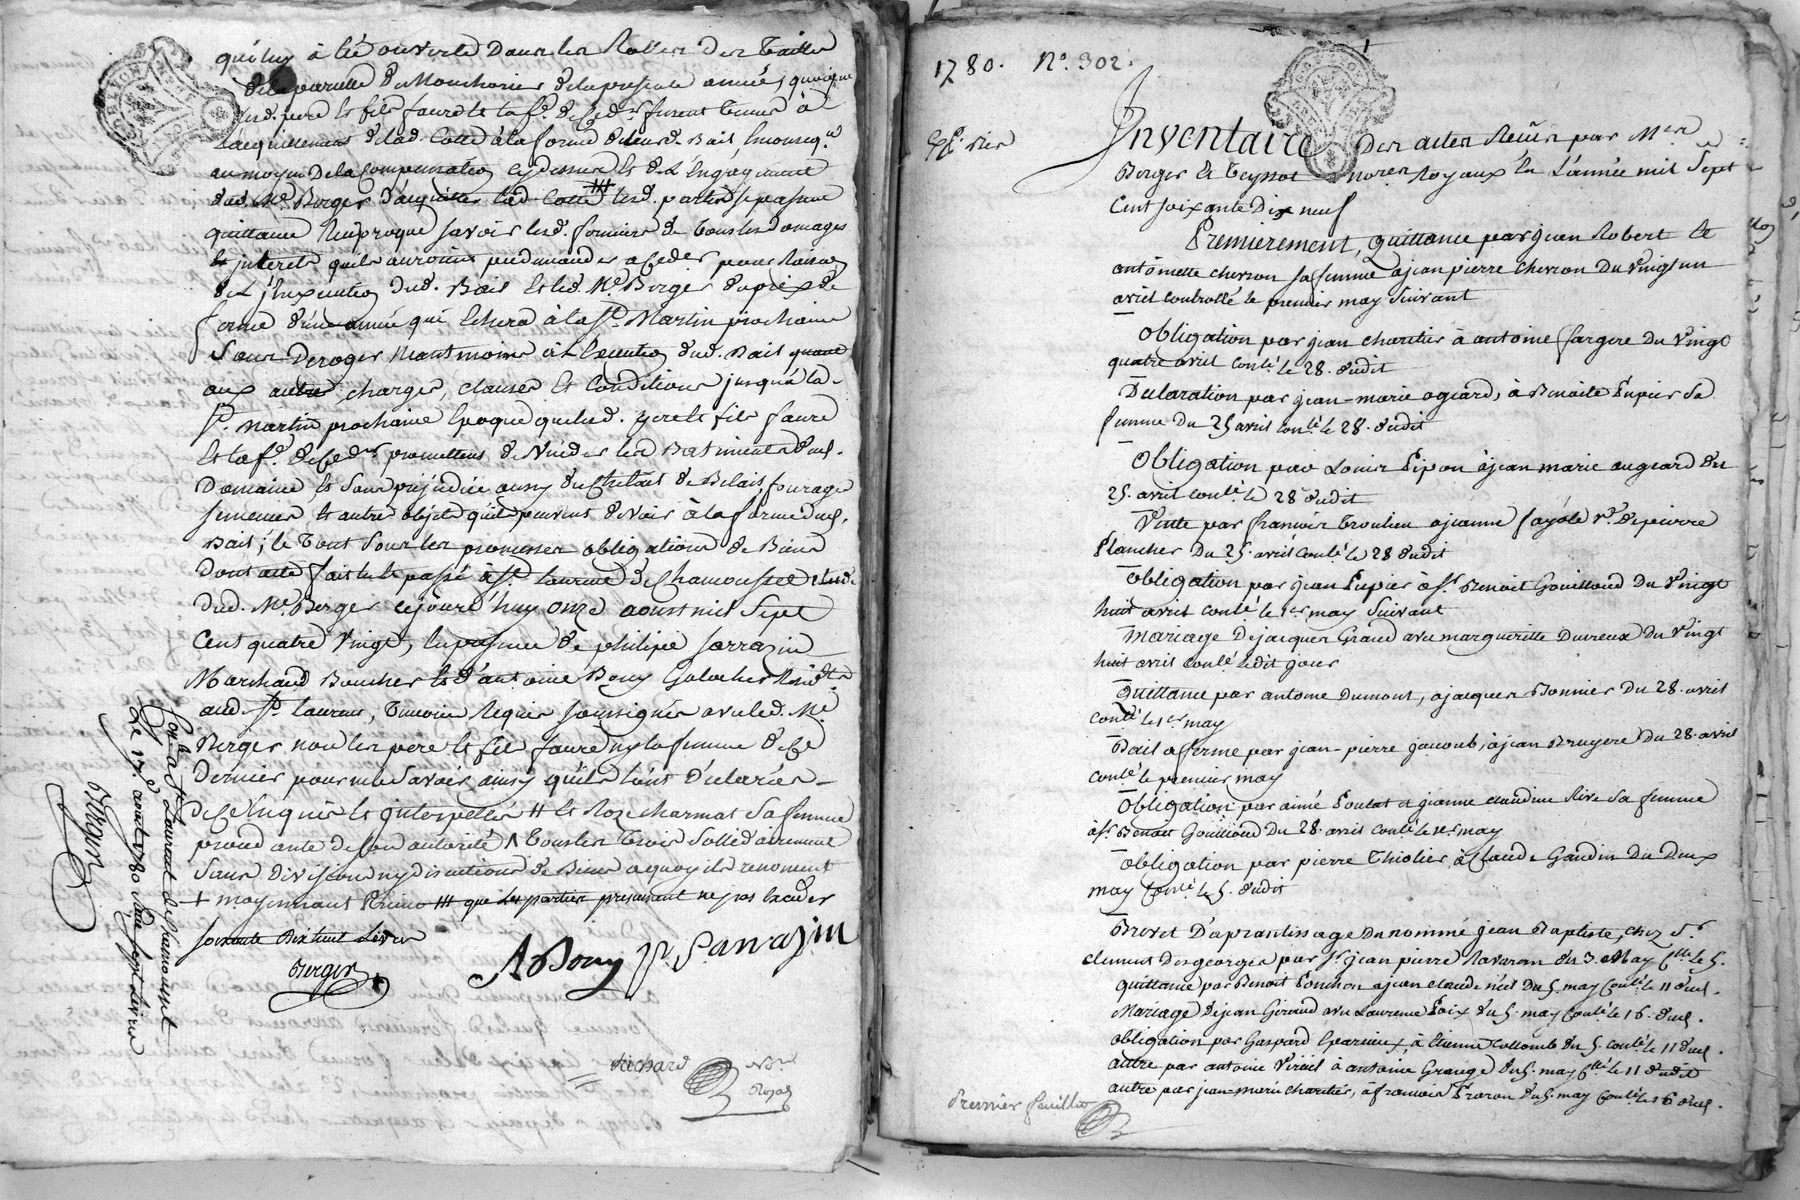 qui luy à été ouverte dans les Rolles des Tailles
de la parcelle de de la presente année, quoique
lesd. pere et fils faure et la fe. de ce der. furent tenus à
l'acquittement de lad. Cotte à la forme de leurd. Bail,
au moyen de la Compensation cy dessus et de L'Engagement
dud. Me. Berger d'acquitter lad. Cotte lesd. parties se passent
quittance Reciproque savoir lesd. fermiers de tous les domages
et interets qu'ils auroient pu demander pour Raison
de L'inexecution dud. Bail et led. Me. Berger du prix de
ferme d'une année qui Echera à la St. Martin prochaine
Sans Deroger Neantmoins à L'execution dud. Bail quant
aux autres charges, clauses et Conditions jusqu'à la
St. Martin prochaine Epoque que lesd. pere et fils faure
et la fe. de ce der promettent de Vuider les Batiments dud.
Domaine et sans prejudice aussy du Chetail de Betail, fourage
semences et autre objets qu'ils peuvent devoir à la forme dud.
Bail; le Tout sous les promesses obligations de Biens
Dont acte fait et passé à St. Laurent de Chamousset Etude
dud. Me. Berger cejourd'huy onze aoust mil Sept
Cent quatre Vingt, En presence de philipe Sarrazin
Marchand Boucher et d'antoine Bouy Galocher Residts
aud. St. Laurent, Temoins Requis soussignés avec led. Me.
Berger non les pere et fils faure ny la femme de ce
Dernier pour ne Savoir ainsy qu'ils l'ont declarés
de ce Enquis et interpellés # et Roze charmat sa femme
procédante de son autorité Λ tous les trois solidairement
sans division ny discution de Biens a quoy ils renoncent
+ moyennant # que les parties presument ne pas Exceder
soixante Dix huit Livres
Berger
ABouy P. Sarrazin
Contlé à St. Laurent de chamousset
Le 17. aout 1780
Richard Nre.
Royal
1780. No. 302.
Inventaire Des actes Reçus par Mes
Berger et Teyssot Nores Royaux En L'année mil Sept
Cent soixante Dix neuf
Premierement, quittance par jean Robert et
antoinette chevron sa femme à jean pierre chevron Du Vingt un
avril controllé le premier may suivant
Obligation par jean charetier à antoine fargere Du Vingt
quatre avril contlé le 28. dudit
Declaration par jean-marie ogiard, à Benoite Pupier sa
femme du 25 avril contlé le 28. dudit
Obligation par Louis Pipon à jean marie augiard du
25. avril contlé le 28 dudit
Vente par francois Troulieu a jeanne fayole ve. de pierre
Plancher du 25. avril contlé le 28 dudit
Obligation par jean Pupier à Sr. Benoit Gouilloud Du Vingt
huit avril contlé le 1er may suivant
Mariage de jacques Giraud avec marguerite Duvreux Du Vingt
huit avril contlé ledit jour
Quittance par antoine Dumont, à jacques Bonnier Du 28. avril
contlé le 1er may
Bail a ferme par jean-pierre jacoub, à jean Bruyere Du 28. avril
contlé le premier may
Obligation par aimé Poulat et jeanne claudine Rive sa femme
à Sr. Benoit Gouilloud Du 28. avril contlé le 1er may
Obligation par pierre Thiolier, à Claude Gaudin Du Deux
may Contlé le 5. dudit
Brevet D'aprantissage du nommé jean Baptiste, chez Sr.
clement Desgeorges par Sr. jean pierre Ravaron du 3. May Ctlé le 5.
quittance par Benoit Ponchon a jean claude Du 5. may Contlé le 11 dud.
Mariage de jean Giraud avec Laurence Poix du 5. may Contlé le 16. dud.
obligation par Gaspard à Etienne Collomb du 5. contlé le 11 dud.
autre par antoine à antoine Grange du 5. may Ctlé le 11 dudit
autre par jean marie charetier, à francois du 5. may Contlé le 16 dud.
Premier feuillet